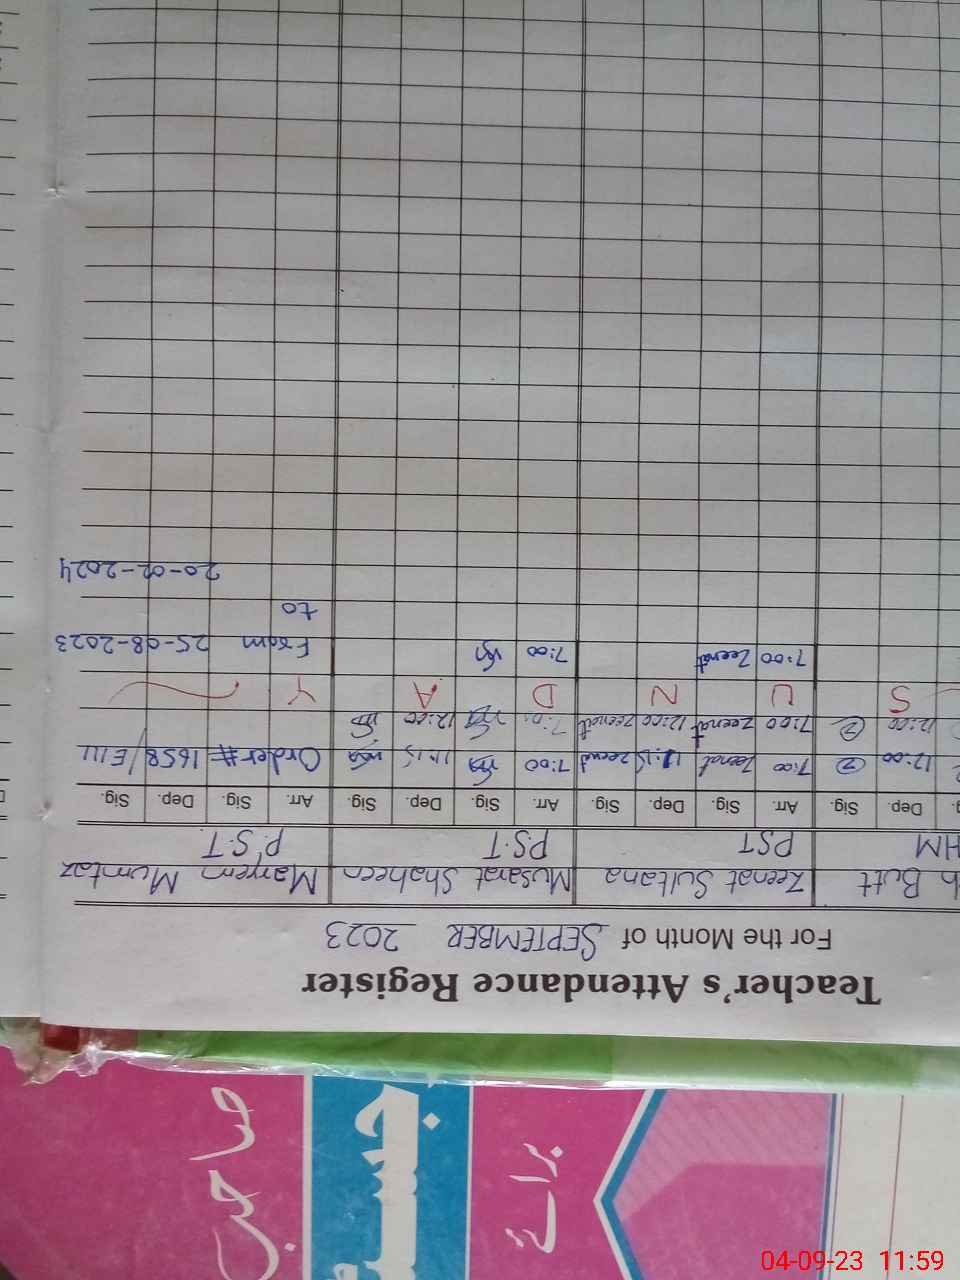 Teacher's Attendance Register
For the Month of SEPTEMBER 2023
Butt Zeenat Sultana Musarat Shaheen Maryem Mumtaz
HM PST P.S.T P.S.T
Sig. Dep. Sig. Arr. Sig. Dep. Sig. Arr. Sig. Dep. Sig. Arr. Sig. Dep. Sig.
12:00 7:00 Zeenat 11:15 Zeenat 7:00 11:15 Order# 1658/EIII
12:00 7:00 Zeenat 12:00 Zeenat 7:0 12:00
S U N D A Y
7:00 Zeenat 7:00 From 25-08-2023
to
20-02-2024
برائے
صاحب
04-09-23 11:59